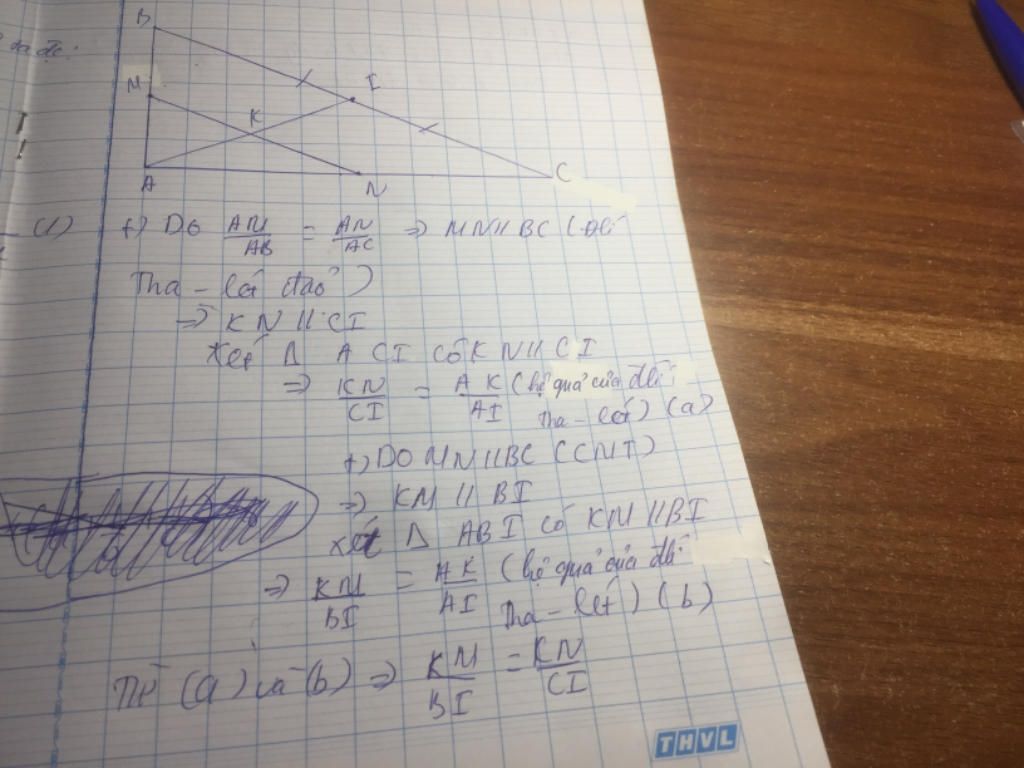 B
M
I
K
A
N
C
(1) +) Do AM/AB = AN/AC ⇒ MN // BC (Đlí
Tha-lét đảo)
⇒ KN // CI
Xét Δ ACI có KN // CI
⇒ KN/CI = AK/AI (hệ quả của đlí
Tha-lét) (a)
+) DO MN // BC (CMT)
⇒ KM // BI
xét Δ ABI có KM // BI
⇒ KM/BI = AK/AI (hệ quả của đlí
Tha-lét) (b)
Từ (a) và (b) ⇒ KM/BI = KN/CI
THVL